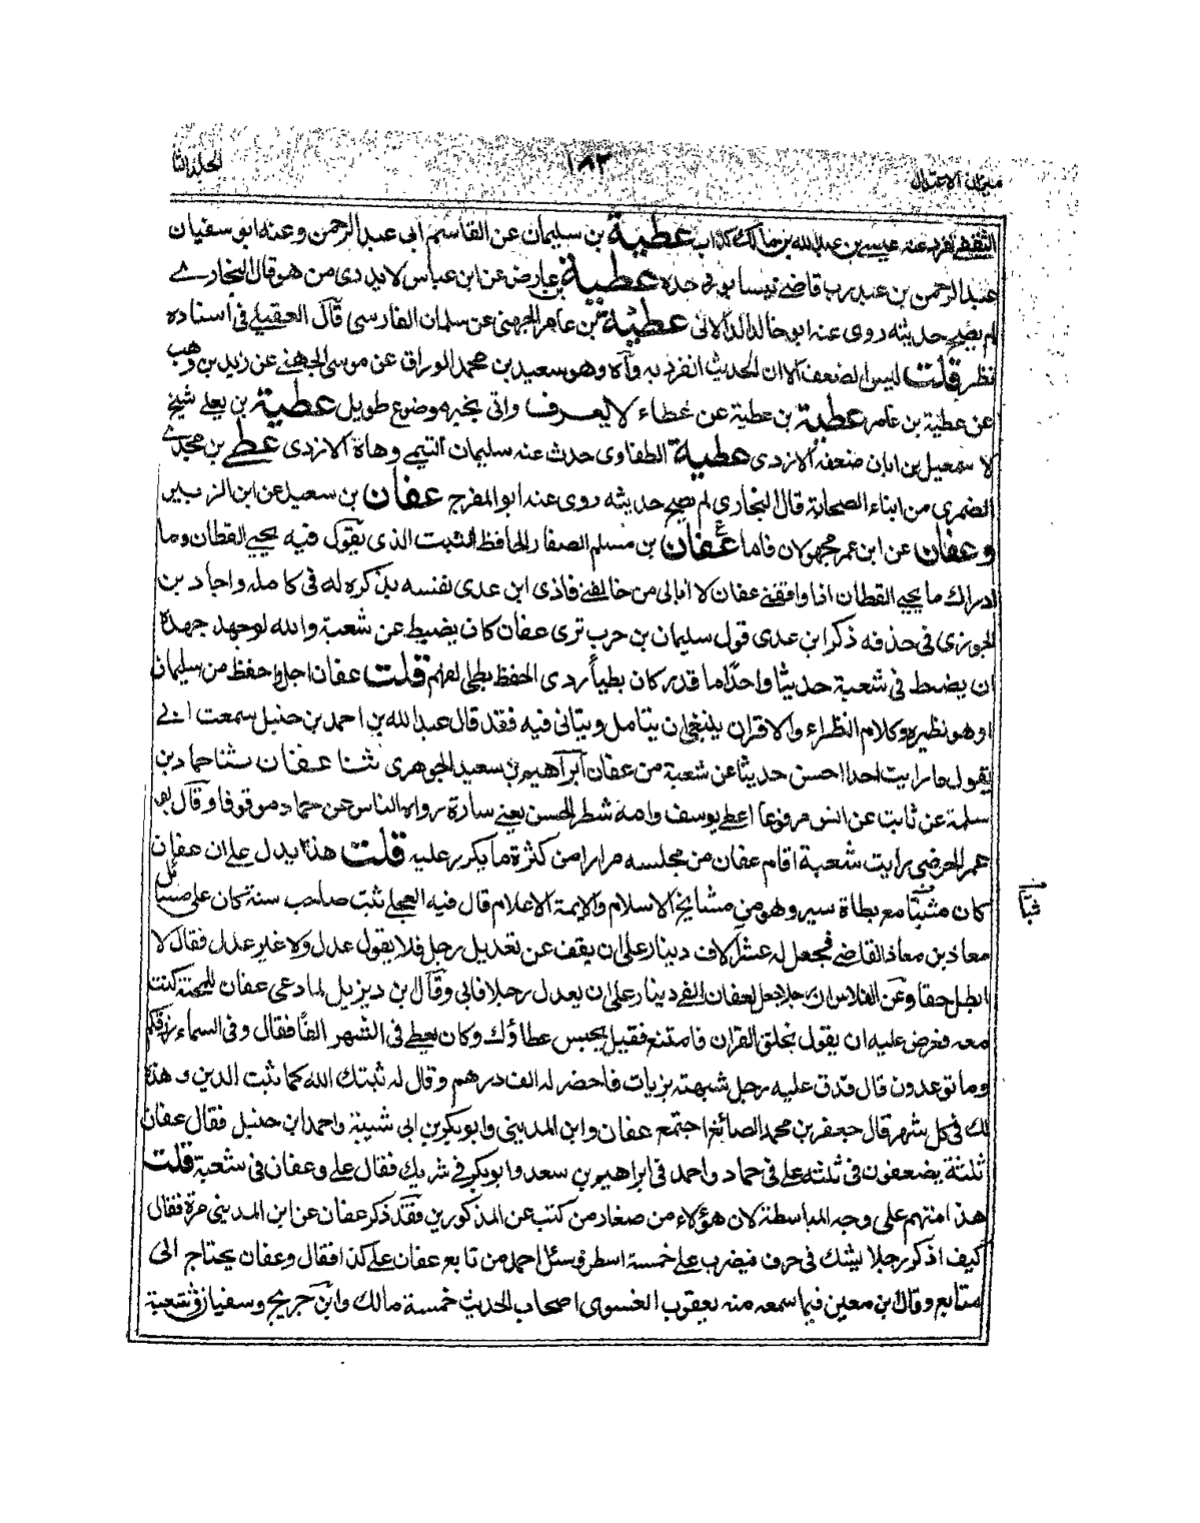 ميزان الاعتدال
١٨٢
الجلد الثا
عنه عيسى بن عبد الله بن مالك كذاب عطية بن سليمان عن القاسم ابى عبد الرحمن وعنه ابو سفيان
عبد الرحمن بن عبد رب قاضى نيسابور فى جده عطية بن عارض عن ابن عباس لا يدرى من هو قال البخارى
لم يصح حديثه روى عنه ابو خالد الدالانى عطية بن عامر الجهنى عن سلمان الفارسى قال العقيلى فى اسناده
نظر قلت ليس الضعف الا ان الحديث انفرد به وآه وهو سعيد بن محمد الوراق عن موسى الجهنى عن زيد بن وهب
عن عطية بن عامر عطية بن عطية عن عطاء لا يعرف واتى بخبر موضوع طويل عطية بن يعلى شيخ
لاسمعيل بن ابان ضعفه الازدى عطية الطفاوى حدث عنه سليمان التيمى وهاه الازدى عطى بن مجدى
الضمرى من ابناء الصحابة قال البخارى لم يصح حديثه روى عنه ابو المفرج عفان بن سعيد عن ابن الزبير
وعفان عن ابن عمر مجهولان فاما عفان بن مسلم الصفار الحافظ الثبت الذى يقول فيه يحيى القطان وما
ادراك ما يحيى القطان اذا وافقنى عفان لا ابالى من خالفنى فاذى ابن عدى نفسه بذكره له فى كامله واجاد بن
الجوزى فى حذفه ذكر ابن عدى قول سليمان بن حرب ترى عفان كان يضبط عن شعبة والله لو جهد جهده
ان يضبط فى شعبة حديثا واحدا ما قدر كان بطيأ ردى الحفظ بطى الفهم قلت عفان اجل واحفظ من سليمان
او هو نظيره وكلام النظراء والاقران ينبغى ان يتامل ويتانى فيه فقد قال عبد الله بن احمد بن حنبل سمعت ابى
يقول ما رايت احدا احسن حديثا عن شعبة من عفان ابراهيم بن سعيد الجوهرى ثنا عفان ثنا حماد بن
سلمة عن ثابت عن انس مرفوعا اعطى يوسف وامه شطر الحسن يعنى سارة رواه الناس عن حماد موقوفا وقال
عمر الحوضى رايت شعبة اقام عفان من مجلسه مرارا من كثرة ما يكرر عليه قلت هذا يدل على ان عفان
كان مثبتا مع بطاة سير وهو من مشايخ الاسلام والايمة الاعلام قال فيه العجلى ثبت صاحب سنة كان على مسائل
ثبتا
معاذ بن معاذ القاضى فجعل له عشرة الاف دينار على ان يقف عن تعديل رجل فلا يقول عدل ولا غير عدل فقال لا
ابطل حقا وعن الفلاس ان رجلا جعل لعفان الفى دينار على ان يعدل رجلا فابى وقال بن ديزيل لما دعى عفان للمحنة كنت
معه فعرض عليه ان يقول بخلق القران فامتنع فقيل يحبس عطاؤك وكان يعطى فى الشهر الفا فقال وفى السماء رزقكم
وما توعدون قال فدق عليه رجل شبهته بزيات فاحضر له الف درهم وقال له ثبتك الله كما ثبت الدين وهذه
لك فى كل شهر قال جعفر بن محمد الصائغ اجتمع عفان وابن المدينى وابو بكر بن ابى شيبة واحمد ابن حنبل فقال عفان
ثلثة يضعفون فى ثلثه على فى حماد واحمد فى ابراهيم بن سعد وابو بكر فى شريك فقال على وعفان فى شعبة قلت
هذا منهم على وجه المباسطة لان هؤلاء من صغار من كتب عن المذكورين فقد ذكر عفان عن ابن المدينى مرة فقال
كيف اذكر رجلا يشك فى حرف فيضرب على خمسة اسطر وسئل احمد من تابع عفان على كذا فقال وعفان يحتاج الى
متابع وقال ابن معين فيما سمعه منه يعقوب الفسوى اصحاب الحديث خمسة مالك وابن جريج وسفيان وشعبة